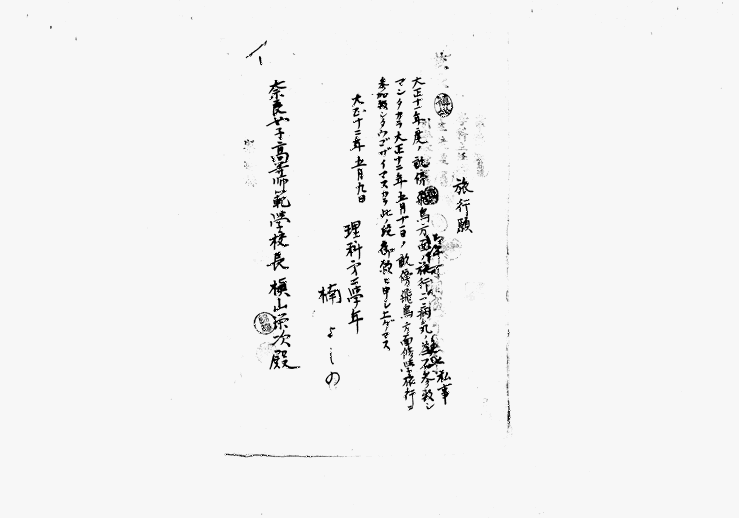 旅行願
私事
大正十一年度ノ畝傍飛鳥方面ノ旅行ニ病気ノ
マシタカラ大正十二年五月十一日ノ畝傍飛鳥方面修学旅行ニ
参加致シタウゴザイマスカラ此ノ段御願ヒ申シ上ゲマス
大正十二年五月九日
理科第二學年
楠 よしの
奈良女子高等師範学校長 槇山栄次殿